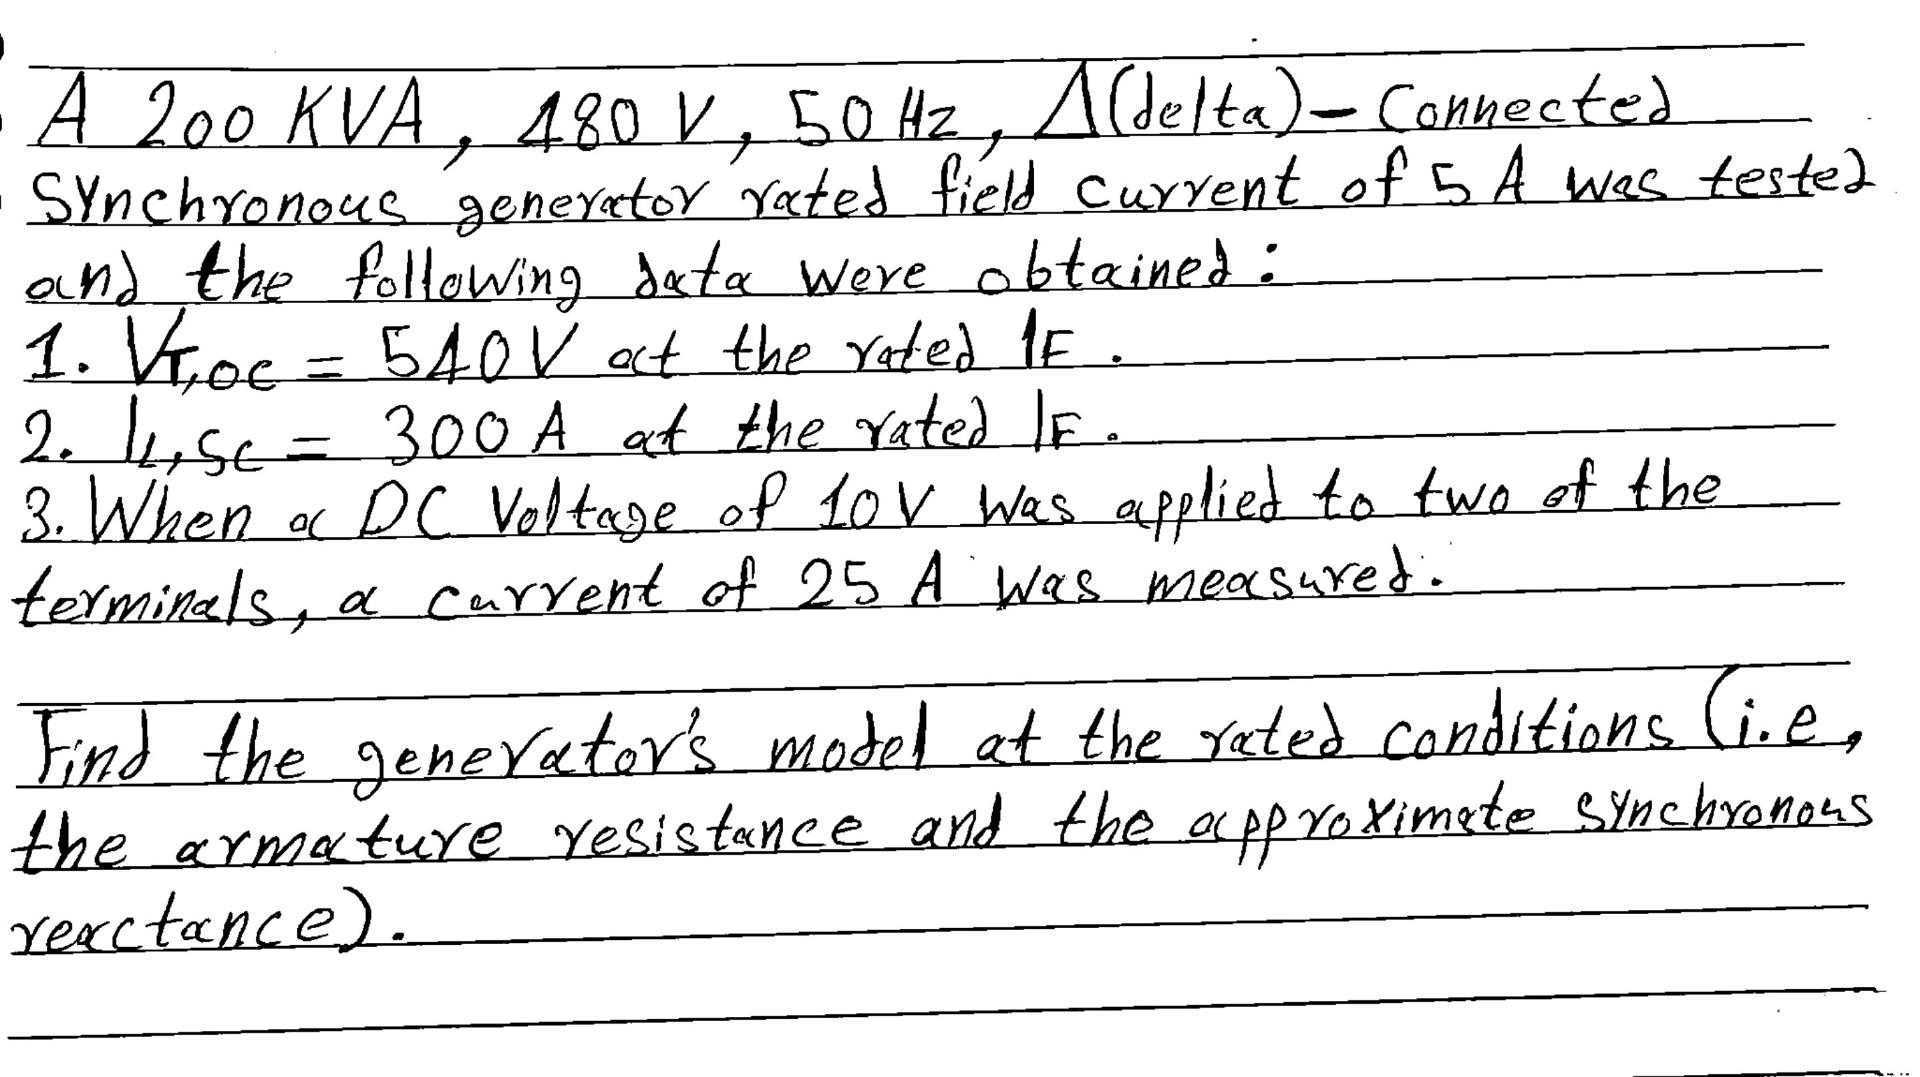 A 200 KVA, 480 V, 50 Hz, Δ(delta)-Connected
Synchronous generator rated field current of 5 A was tested
and the following data were obtained:
1. VT,OC = 540 V at the rated IF.
2. IL,SC = 300 A at the rated IF.
3. When a DC Voltage of 10 V was applied to two of the
terminals, a current of 25 A was measured.
Find the generator's model at the rated conditions (i.e,
the armature resistance and the approximate synchronous
reactance).